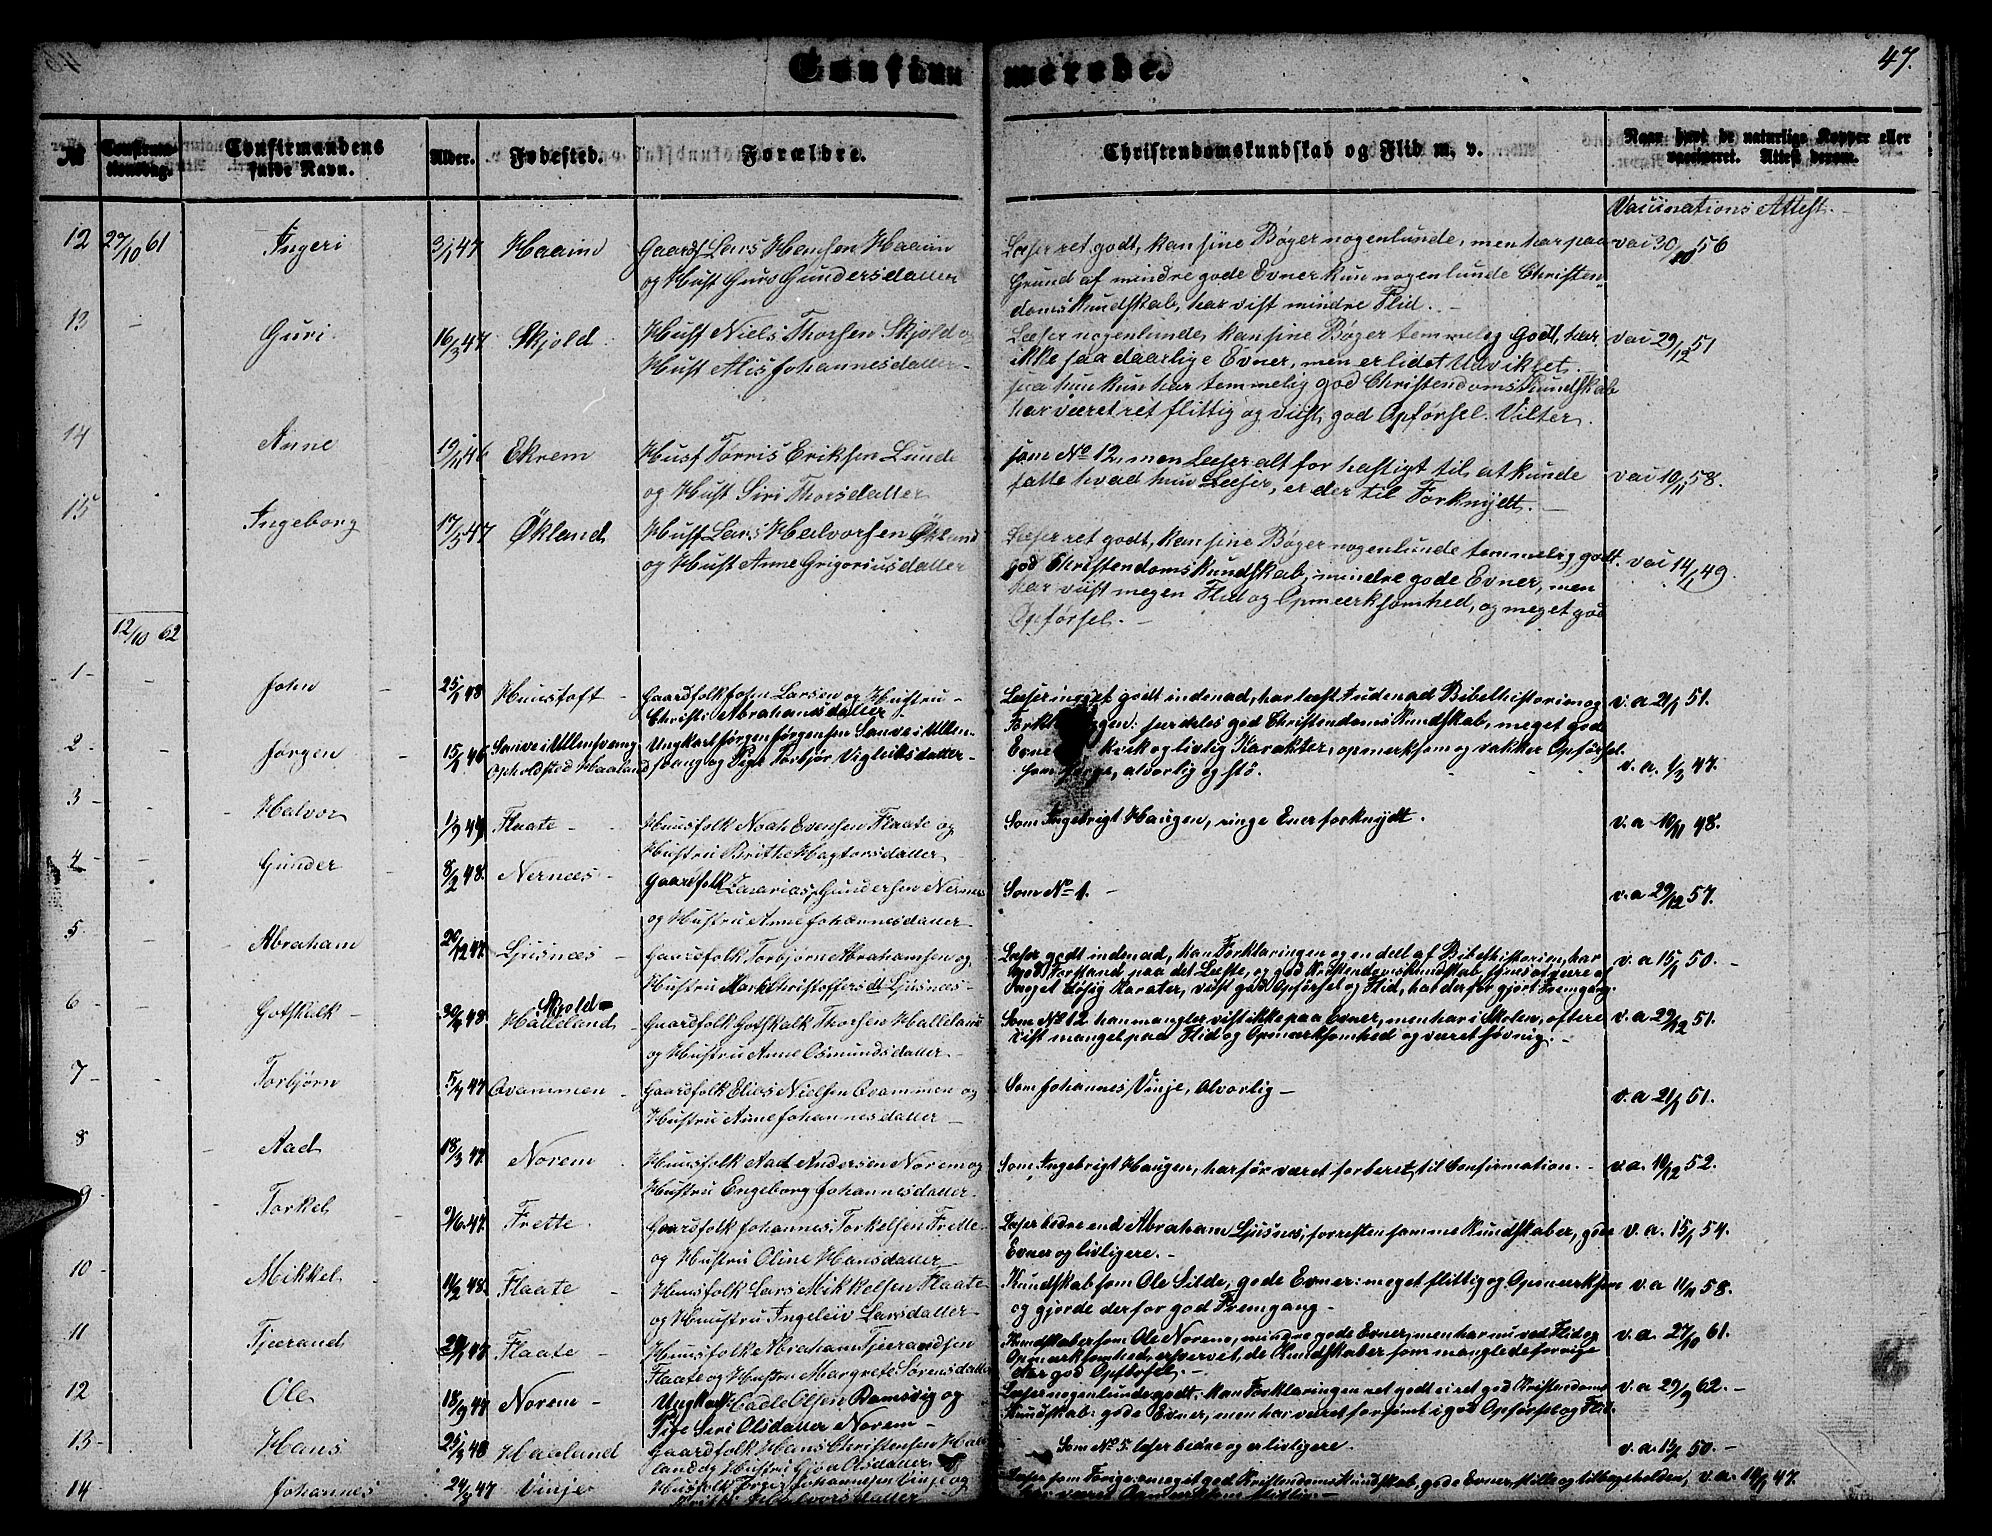 Confirmerede.
47.
№ Confirmationsdag. Confirmandens fulde Navn. Alder. Fødested. Forældre. Christendomskundskab og Flid m. v. Naar havt de naturlige Kopper eller vaccineret. Attest derom.
Vaccinations Attest.
12 27/10 61 Ingeri 3/1 47 Haaim Gaardf. Lars Hansen Haaim Læser ret godt, kan sine Bøger nogenlunde, men har paa vac 30/10 56
og Hust Guro Gundersdatter Grund af mindre gode Evner kun nogenlunde Christen-
domskundskab, har vist mindre Flid.
13 - Guri 16/3 47 Skjold Husf Niels Thorsen Skjold og Læser nogenlunde, kan sine Bøger temmelig godt, har vac 29/12 51
Hust Alis Johannesdatter ikke saa daarlige Evner, men er lidet Udviklet
saa hun kun har temmelig god Christendomskundskab
har været ret flittig og viist god Opførsel. Vilter.
14 Anne 19/11 46 Ekrem Husf Tørris Eriksen Lunde som No 12, men Læser alt for hastigt til at kunde vac 10/11 58.
og Hust Siri Thorsdatter fatte hvad hun Læser, er der til Forknydt.
15 Ingeborg 17/5 47 Økland Husf Lars Halvorsen Økland Læser ret godt, kan sine Bøger nogenlunde temmelig godt. vac 14/1 49.
og Hust Anne Grigoriusdatter god Christendomskundskab, mindre gode Evner, men
har viist megen Flid og Opmærksomhed, og meget god
Opførsel.
12/10 62
1 - John 25/1 48 Huustoft Gaardfolk John Larsen og Hustru Læser meget godt indenad, har læst Audenad Bibelhistorien og v. a 21/1 51.
Christi Abrahamsdatter særdeles god Christendoms Kundskab, meget gode
2 - Jørgen 15/2 46 Sauve i Ullensvang Ungkarl Jørgen Jørgensen Sauve i Ullen- Evne kvik og livlig Karakter, opmærksom og vakker Opførsel v. a. 1/3 47.
Opholdsted Haaland svang og Pige Torbjør Vigleiksdatter alvorlig og stø.
3 - Halvor 1/9 47 Flaate Huusfolk Noah Evensen Flaate og Som Ingebrigt Haugen, ringe Evner forknydt. v. a 10/11 48.
Hustru Brithe Hagtorsdatter
4 - Gunder 8/2 48. Nernæs Gaardfolk Zacarias Gundersen Nernæs Som No 1. v. a 29/12 57.
og Hustru Anne Johannesdatter
5 - Abraham 20/12 47. Ljusnæs Gaardfolk Torbjørn Abrahamsen og Læser godt indenad, kan Forklaringen og en deel af Bibelhistorien, har v. a 15/1 50.
Hustru Mark Christoffersdt Ljusnæs god Forstand paa det Læste, og god Kristendomskundskab, synes at være af
noget Løsig Karater, viist god Opførsel og Flid, har derfor gjort Fremgang.
6 - Gotskalk 30/1 48 Skjold Halleland Gaardfolk Gotskalk Thorsen Halleland Som No 12 han mangler vist ikke paa Evner, men har i Skolen oftere v. a 29/12 51.
og Hustru Anne Osmundsdatter vist mangel paa Flid og Opmærksomhed og været søvnig.
7 - Torbjørn 5/9 47 Ovammen Gaardfolk Elias Nielsen Ovammen og Som Johannes Vinje, Alvorlig v. a 21/1 51.
Hustru Anne Johannesdatter
8 Aad 18/3 47. Norem Huusfolk Aad Andersen Norem og Som Ingebrigt Haugen, har før været forberet til Confirmation. v. a. 10/12 52.
Hustru Engeborg Johannesdatter
9 Torkel 9/6 47. Frette Gaardfolk Johannes Torkelsen Frette Læser bedre end Abraham Ljusnes, forresten samme Kundskaber, gode v. a. 15/1 54.
og Hustru Oline Hansdatter Evner og livligere.
10 Mikkel 11/2 48. Flaate Huusfolk Lars Mikkelsen Flaate Kundskab som Ole Silde, gode Evner: meget flittig og Opmærksom v. a 11/11 58.
og Hustru Ingeleiv Larsdatter og gjorde derfor god Fremgang
11 Tjærand 29/1 47 Flaate Huusfolk Abraham Tjerandsen Kundskaber som Ole Norene, mindre gode Evner, men har nu ved Flid og v. a. 27/10 61.
Flaate og Hustru Margrete Sørensdatter Opmærksomhed, ervervet de Kundskaber som manglede forrige
Aar god Opførsel.
12 Ole 18/9 47 Norem Ungkarl Cadle Olsen Ramsvig og Læser nogenlunde godt. kan Forklaringen ret godt ei ret god Kristendoms v. a 29/9 62.
Pige Siri Olsdatter Norem Kundskab. gode Evner, men har været forsømt i god Opførsel og Flid
13 Hans 25/3 48 Haaland Gaardfolk Hans Christensen Haa Som No 5. læser bedre og er livligere. v. a. 15/1 50.
land og Hustru Gjøa Olsdatter
14 Johannes 24/3 47 Vinje Huusfolk Johannesen Vinje og Læser som Forige meget god Kristendoms Kundskab, gode Evner, stille og tilbageholden, v. a. 14/1 47.
Halvorsdatter